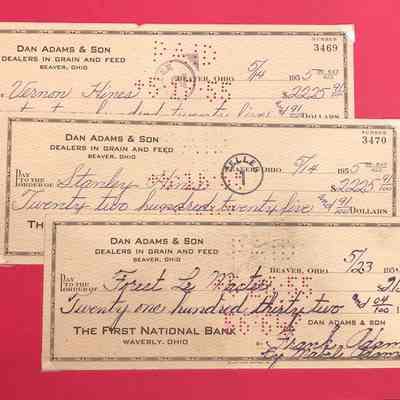 DAN ADAMS & SON
DEALERS IN GRAIN AND FEED
BEAVER, OHIO
NUMBER
3469
PAID
BEAVER, OHIO 5/14 1955
Vernon Hines $2225 91
hundred twenty five & 91 DOLLARS
DAN ADAMS & SON
DEALERS IN GRAIN AND FEED
BEAVER, OHIO
NUMBER
3470
BEAVER, OHIO 5/14 1955
PAY TO THE ORDER OF Stanley Hines $2225 91/100
Twenty two hundred twenty five & 91/100 DOLLARS
TH
DAN ADAMS & SON
DEALERS IN GRAIN AND FEED
BEAVER, OHIO 5/23 195
PAY TO THE ORDER OF Forest Le Master $21
Twenty one hundred thirty two & 04/100
DAN ADAMS & SON
THE FIRST NATIONAL BANK
WAVERLY, OHIO
Frank Adam
By Mabel Adams